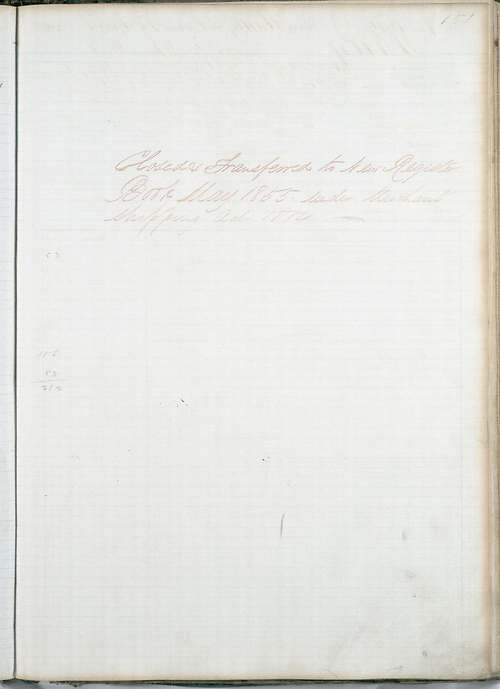 151
Closed & Transferred to New Register
Book May 1855 under Merchant
Shipping Act 1854
53
53
212